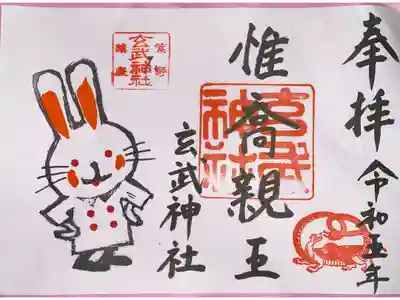 奉拝
令和五年
惟喬親王
玄武神社
玄武神社
紫野
鎮座
玄武神社